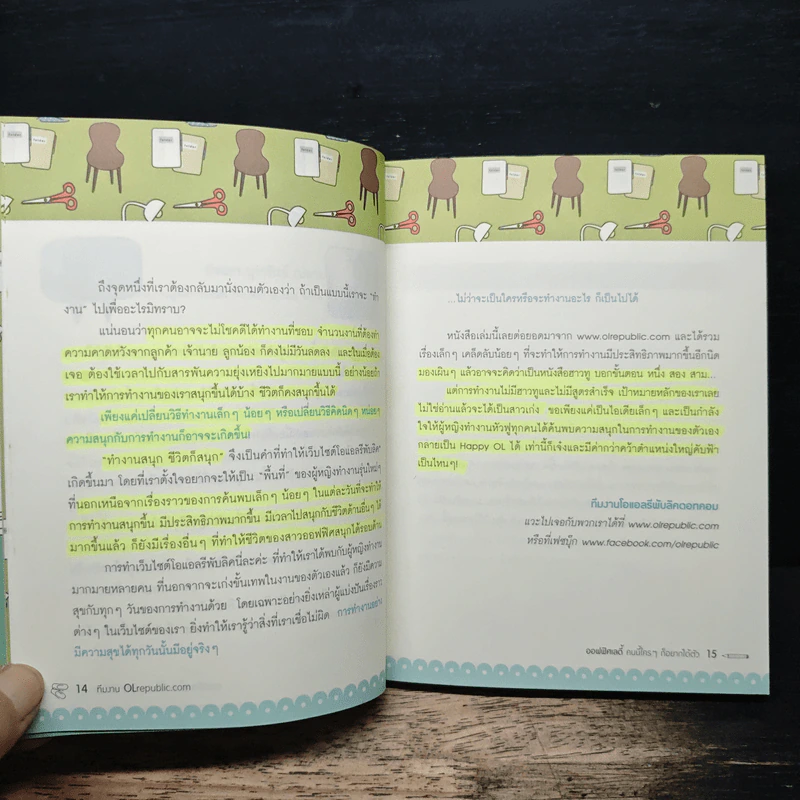 ถึงจุดหนึ่งที่เราต้องกลับมานั่งถามตัวเองว่า ถ้าเป็นแบบนี้เราจะ "ทำ
งาน" ไปเพื่ออะไรมิทราบ?
แน่นอนว่าทุกคนอาจจะไม่โชคดีได้ทำงานที่ชอบ จำนวนงานที่ต้องทำ
ความคาดหวังจากลูกค้า เจ้านาย ลูกน้อง ก็คงไม่มีวันลดลง และในเมื่อต้อง
เจอ ต้องใช้เวลาไปกับสารพันความยุ่งเหยิงไปมากมายแบบนี้ อย่างน้อยถ้า
เราทำให้การทำงานของเราสนุกขึ้นได้บ้าง ชีวิตก็คงสนุกขึ้นได้
เพียงแค่เปลี่ยนวิธีทำงานเล็กๆ น้อยๆ หรือเปลี่ยนวิธีคิดนิดๆ หน่อยๆ
ความสนุกกับการทำงานก็อาจจะเกิดขึ้น!
"ทำงานสนุก ชีวิตก็สนุก" จึงเป็นคำที่ทำให้เว็บไซต์โอแอลรีพับลิค
เกิดขึ้นมา โดยที่เราตั้งใจอยากจะให้เป็น "พื้นที่" ของผู้หญิงทำงานรุ่นใหม่ๆ
ที่นอกเหนือจากเรื่องราวของการค้นพบเล็กๆ น้อยๆ ในแต่ละวันที่จะทำให้
การทำงานสนุกขึ้น มีประสิทธิภาพมากขึ้น มีเวลาไปสนุกกับชีวิตด้านอื่นๆ ได้
มากขึ้นแล้ว ก็ยังมีเรื่องอื่นๆ ที่ทำให้ชีวิตของสาวออฟฟิศสนุกได้รอบด้าน
การทำเว็บไซต์โอแอลรีพับลิคนี่ละค่ะ ที่ทำให้เราได้พบกับผู้หญิงทำงาน
มากมายหลายคน ที่นอกจากจะเก่งขั้นเทพในงานของตัวเองแล้ว ก็ยังมีความ
สุขกับทุกๆ วันของการทำงานด้วย โดยเฉพาะอย่างยิ่งเหล่าผู้แบ่งปันเรื่องราว
ต่างๆ ในเว็บไซต์ของเรา ยิ่งทำให้เรารู้ว่าสิ่งที่เราเชื่อไม่ผิด การทำงานอย่าง
มีความสุขได้ทุกวันนั้นมีอยู่จริงๆ
14 ทีมงาน OLrepublic.com
...ไม่ว่าจะเป็นใครหรือจะทำงานอะไร ก็เป็นไปได้
หนังสือเล่มนี้เลยต่อยอดมาจาก www.olrepublic.com และได้รวม
เรื่องเล็กๆ เคล็ดลับน้อยๆ ที่จะทำให้การทำงานมีประสิทธิภาพมากขึ้นอีกนิด
มองเผินๆ แล้วอาจจะคิดว่าเป็นหนังสือฮาวทู บอกขั้นตอน หนึ่ง สอง สาม...
แต่การทำงานไม่มีฮาวทูและไม่มีสูตรสำเร็จ เป้าหมายหลักของเราเลย
ไม่ใช่อ่านแล้วจะได้เป็นสาวเก่ง ขอเพียงแค่เป็นไอเดียเล็กๆ และเป็นกำลัง
ใจให้ผู้หญิงทำงานหัวฟูทุกคนได้ค้นพบความสนุกในการทำงานของตัวเอง
กลายเป็น Happy OL ได้ เท่านี้ก็เจ๋งและมีค่ากว่าคว้าตำแหน่งใหญ่คับฟ้า
เป็นไหนๆ!
ทีมงานโอแอลรีพับลิคดอทคอม
แวะไปเจอกับพวกเราได้ที่ www.olrepublic.com
หรือที่เฟซบุ๊ก www.facebook.com/olrepublic
ออฟฟิศเลดี้ คนนี้ใครๆ ก็อยากได้ตัว 15